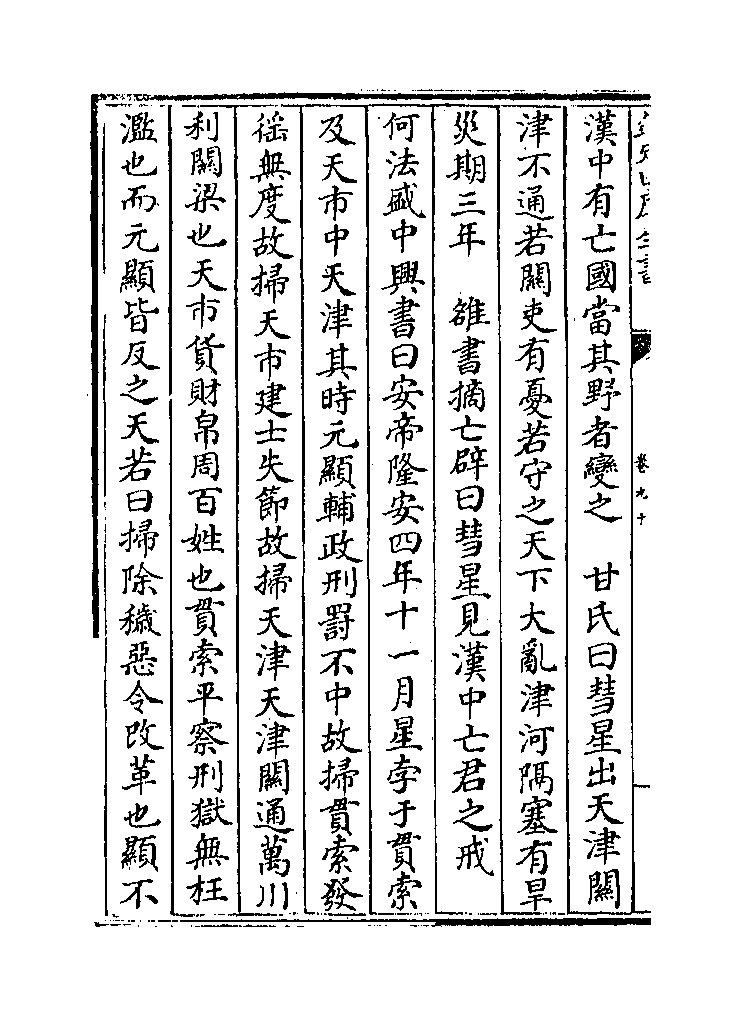 欽定四庫全書
卷九十
漢中有亡國當其野者變之　甘氏曰彗星出天津關
津不通若關吏有憂若守之天下大亂津河隔塞有旱
災期三年　雒書摘亡辟曰彗星見漢中亡君之戒
何法盛中興書曰安帝隆安四年十一月星孛于貫索
及天市中天津其時元顯輔政刑罰不中故掃貫索發
徭無度故掃天市建士失節故掃天津天津關通萬川
利關梁也天市貨財帛周百姓也貫索平察刑獄無枉
濫也而元顯皆反之天若曰掃除穢惡令改革也顯不